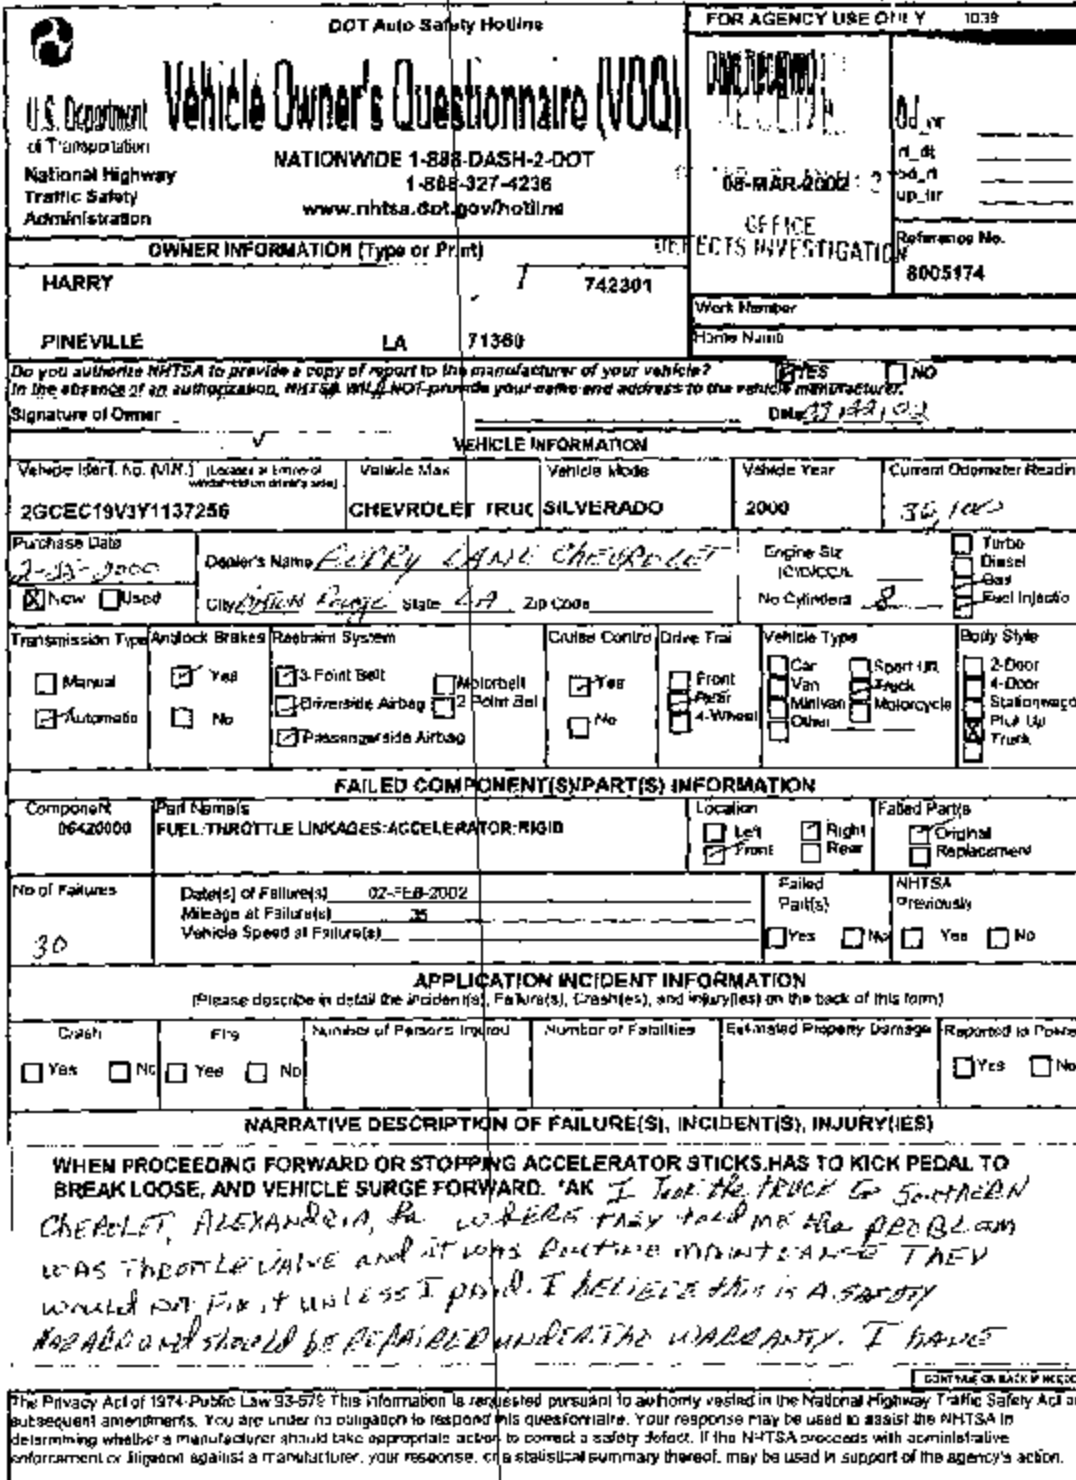 DOT Auto Safety Hotline
FOR AGENCY USE ONLY 1039
Vehicle Owner's Questionnaire (VOQ)
U.S. Department
of Transportation
National Highway
Traffic Safety
Administration
NATIONWIDE 1-888-DASH-2-DOT
1-888-327-4236
www.nhtsa.dot.gov/hotline
08-MAR-2002
OFFICE
DEFECTS INVESTIGATION
od_or
rt_dt
od_rt
up_ltr
Reference No.
8005174
OWNER INFORMATION (Type or Print)
HARRY 742301
PINEVILLE LA 71360
Work Number
Home Numb
Do you authorize NHTSA to provide a copy of report to the manufacturer of your vehicle? YES NO
In the absence of an authorization, NHTSA WILL NOT provide your name and address to the vehicle manufacturer.
Signature of Owner Date
VEHICLE INFORMATION
Vehicle Ident. No. (VIN.) Vehicle Mak Vehicle Mode Vehicle Year Current Odometer Readin
2GCEC19V3Y1137256 CHEVROLET TRUC SILVERADO 2000
Purchase Date
2-25-2000
New Used
Dealer's Name LANE CHEVROLET
City State LA Zip Code
Engine Siz
No Cylinders 8
Turbo
Diesel
Gas
Fuel Injectio
Transmission Type Antilock Brakes Restraint System Cruise Contro Drive Trai Vehicle Type Body Style
Manual
Automatic
Yes
No
3-Point Belt
Driverside Airbag
Passengerside Airbag
Motorbelt
2 Point Bel
Yes
No
Front
Rear
4-Wheel
Car
Van
Minivan
Other
Sport Uti
Truck
Motorcycle
2-Door
4-Door
Stationwago
Pick Up
Truck
FAILED COMPONENT(S)/PART(S) INFORMATION
Component Part Name/s Location Failed Part/s
06420000 FUEL:THROTTLE LINKAGES:ACCELERATOR:RIGID
Left Right
Front Rear
Original
Replacement
No of Failures
30
Date(s) of Failure(s) 02-FEB-2002
Mileage at Failure(s) 35
Vehicle Speed at Failure(s)
Failed
Part(s)
Yes No
NHTSA
Previously
Yes No
APPLICATION INCIDENT INFORMATION
(Please describe in detail the incident(s), Failure(s), Crash(es), and injury(ies) on the back of this form)
Crash Fire Number of Persons Injured Number of Fatalities Estimated Property Damage Reported to Police
Yes No Yes No Yes No
NARRATIVE DESCRIPTION OF FAILURE(S), INCIDENT(S), INJURY(IES)
WHEN PROCEEDING FORWARD OR STOPPING ACCELERATOR STICKS.HAS TO KICK PEDAL TO
BREAK LOOSE, AND VEHICLE SURGE FORWARD. *AK I Took the TRUCK to SOUTHERN
CHEVROLET, ALEXANDRIA, La WHERE they told me the PROBLEM
WAS THROTTLE VALVE and it was Routine MAINTEANCE THEY
would not Fix it unless I paid. I BELIEVE this is A SAFETY
HAZARD and should be REPAIRED UNDER THE WARRANTY. I HAVE
CONTINUE ON BACK IF NEEDED
The Privacy Act of 1974-Public Law 93-579 This information is requested pursuant to authority vested in the National Highway Traffic Safety Act an
subsequent amendments. You are under no obligation to respond this questionnaire. Your response may be used to assist the NHTSA in
determining whether a manufacturer should take appropriate action to correct a safety defect. If the NHTSA proceeds with administrative
enforcement or litigation against a manufacturer, your response, or a statistical summary thereof, may be used in support of the agency's action.